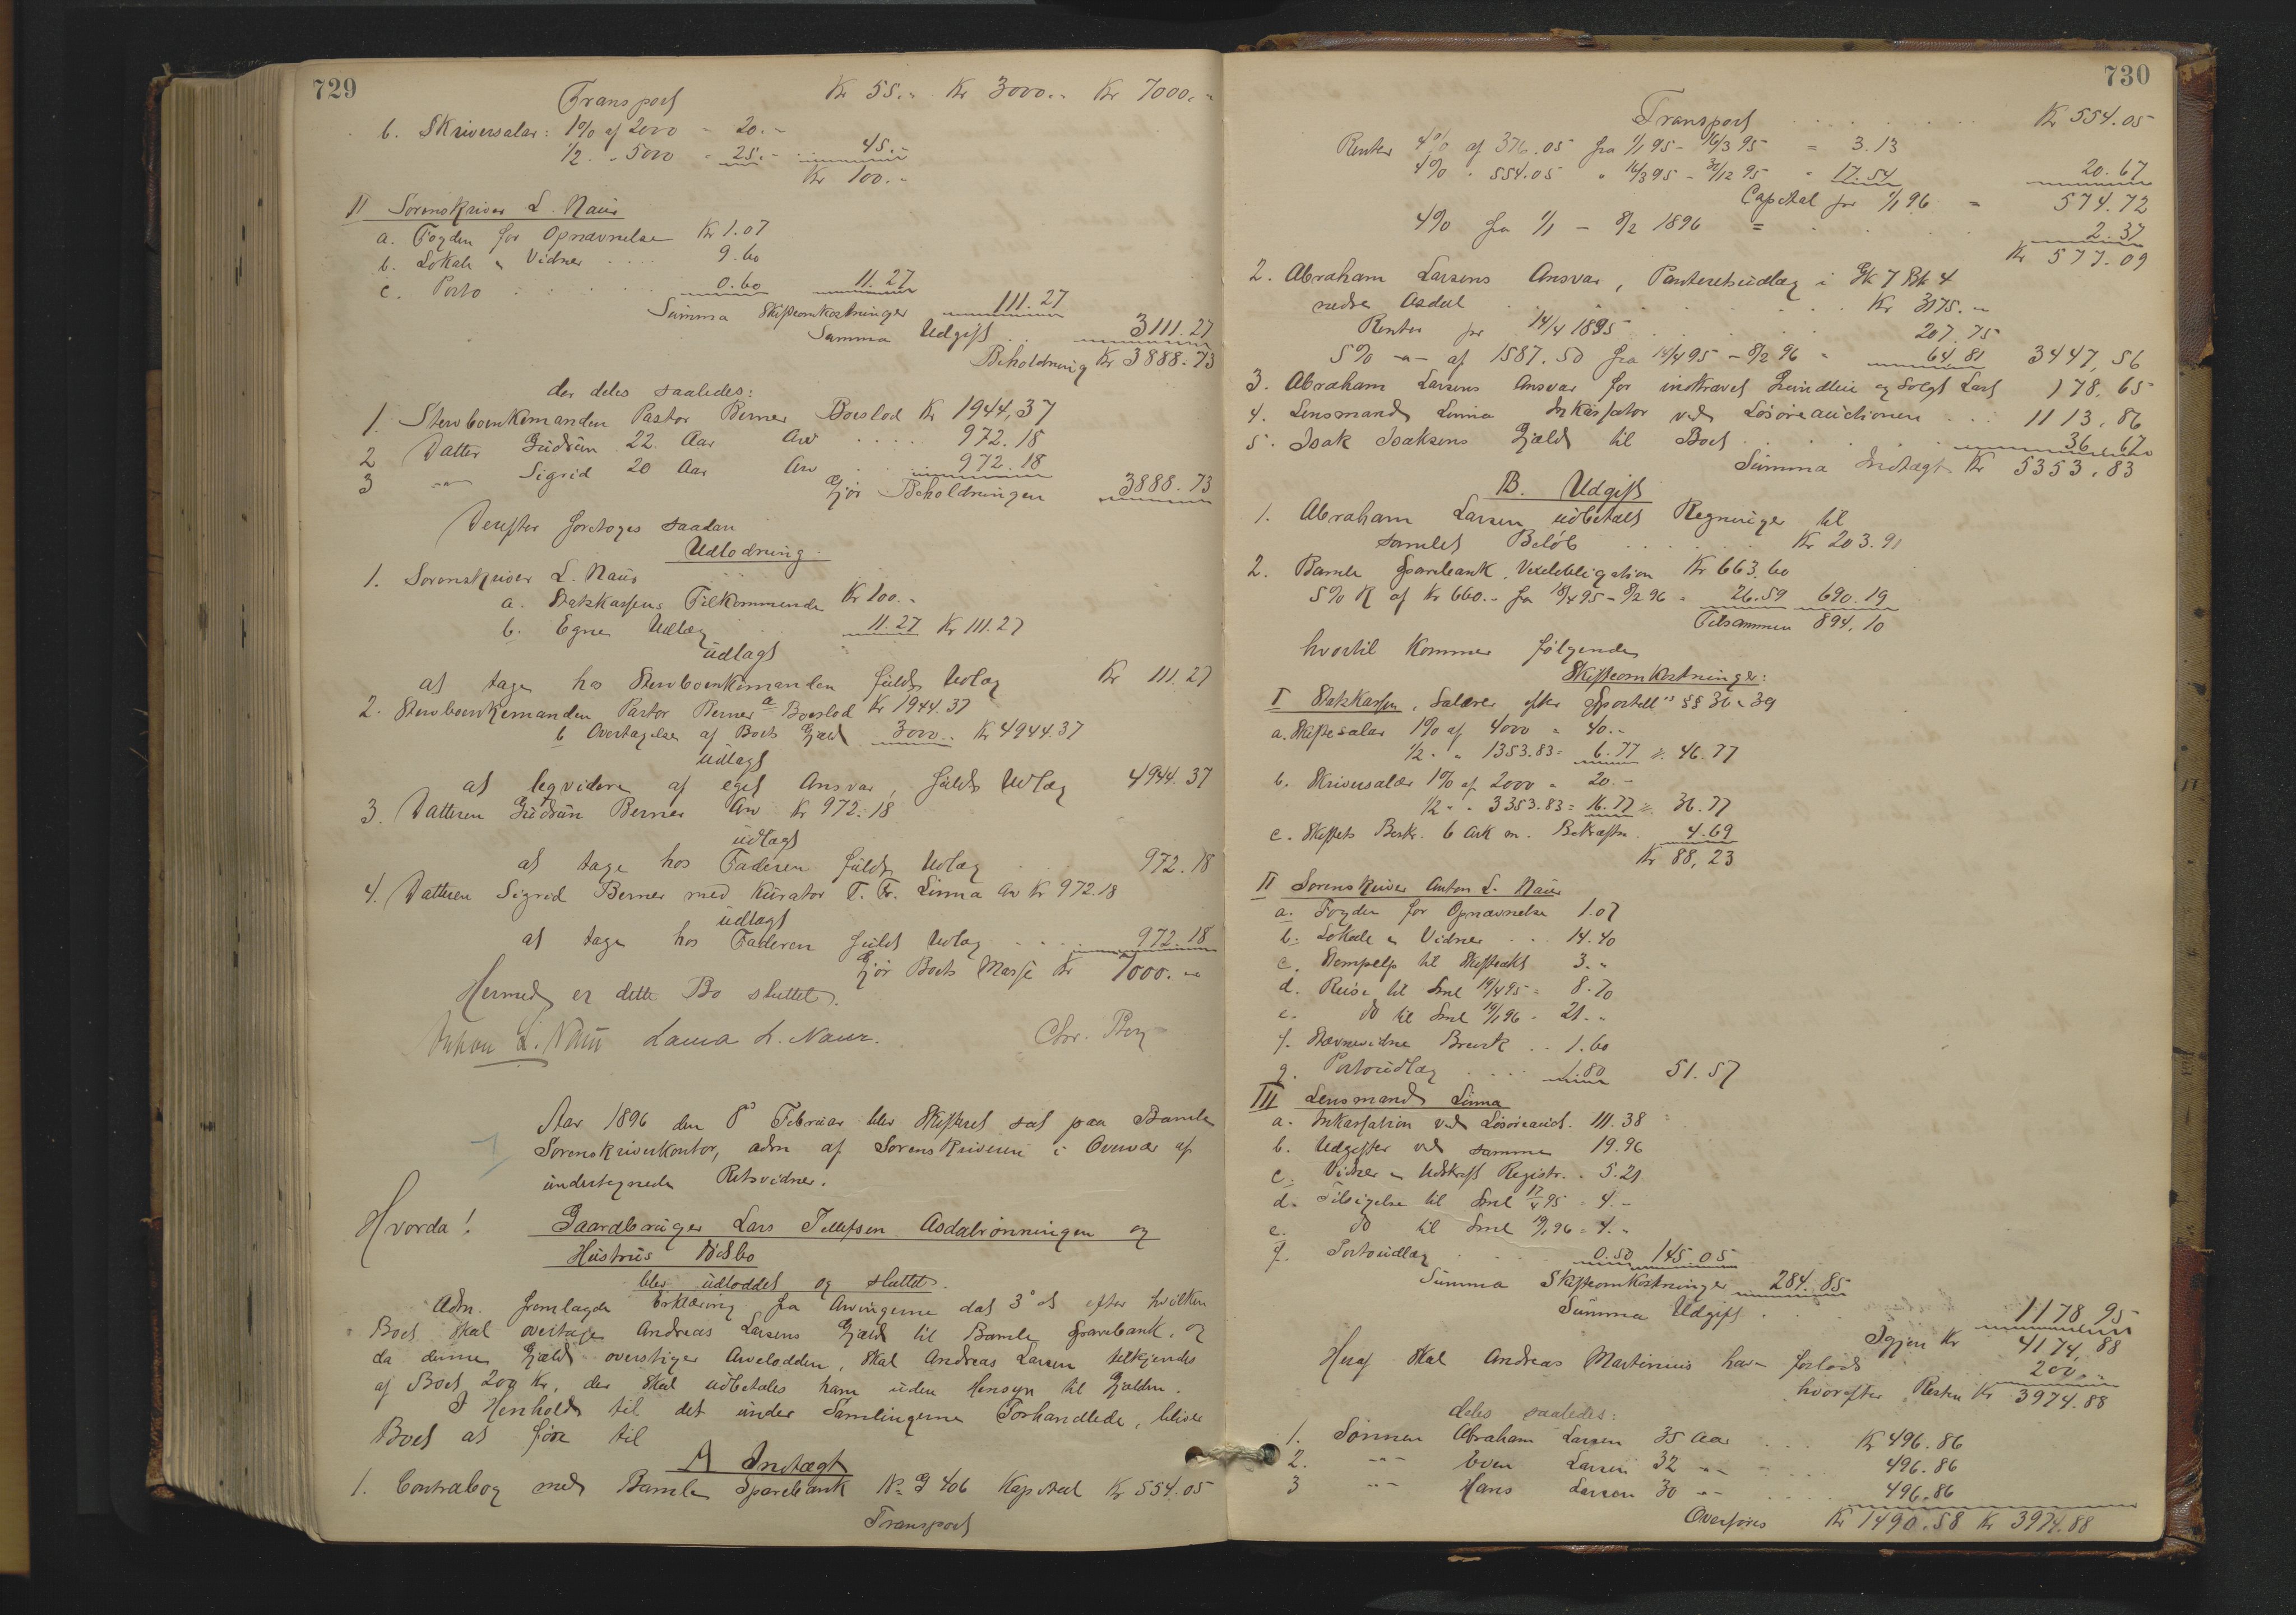 729
Transport Kr 55.- Kr 3000.- Kr 7000.-
b. Skriversalar: 1% af 2000 = 20.-
1/2 " " 5000 = 25.- 45.-
Kr 100.-
II Sorenskriver L. Naur
a. Fogden for Opnævnelse Kr 1.07
b. Lokale & Vidner .... 9.60
c. Porto ..... 0.60 11.27
Summa Skifteomkostninger 111.27
Summa Udgift .. 3111.27
Beholdning Kr 3888.73
der deles saaledes:
1. Stervboenkemanden Pastor Berner Boeslod Kr 1944,37
2 Datter Gudrun 22. Aar Arv .... 972.18
3 -"- Sigrid 20 Aar Arv .... 972.18
Gjør Beholdningen 3888.73
Derefter foretoges saadan
Udlodning.
1. Sorenskriver L. Naur
a. Statskassens Tilkommende Kr 100.-
b. Egne Udlæg 11.27 Kr 111.27
udlagt
at tage hos Stervboenkemanden fuldt Udlæg Kr 111.27
2. Stervboenkemanden Pastor Berner a Boeslod Kr 1944.37
b Overtagelse af Boets Gjæld 3000.- Kr 4944.37
udlagt
at leqvidere af eget Ansvar, fuldt Udlæg 4944.37
3. Datteren Gudrun Berner Arv Kr 972.18
udlagt
at tage hos Faderen fuldt Udlæg 972.18
4. Datteren Sigrid Berner med Kurator T. Fr. Linna Arv Kr 972.18
udlagt
at tage hos Faderen fuldt Udlæg ... 972.18
Gjør Boets Masse Kr 7000.-
Hermed er dette Bo sluttet.
Anton L. Naur Laura L. Naur. Chr. Berg
Aar 1896 den 8de Februar blev Skifteret sat paa Bamle
Sorenskriverkontor, adm af Sorenskriveren i Overvær af
undertegnede Retsvidner.
Hvorda! Gaardbruger Lars Tellefsen Asdalrønningen og
Hustrus Dødsbo
blev udloddet og sluttet.
Adm. fremlagde Erklæring fra Arvingerne dat 3' ds efter hvilken
Boet skal overtage Andreas Larsens Gjæld til Bamle Sparebank, og
da denne Gjæld overstiger Arvelodden, skal Andreas Larsen tilkjendes
af Boet 200 Kr, der skal udbetales ham uden Hensyn til Gjælden.
I Henhold til det under Samlingerne Forhandlede, bliver
Boet at føre til
A Indtægt
1. Contrabog med Bamle Sparebank No G 406 Kapital Kr 554.05
Transport
730
Transport ....... Kr 554.05
Renter 4% af 376.05 fra 1/1 95 - 16/3 95 = 3.13
4% " 554.05 " 16/3 95 - 31/12 95 " 17.54 20.67
Capital pr 1/1 96 = 574.72
4% fra 1/1 - 8/2 1896 = 2.37
Kr 577.09
2. Abraham Larsens Ansvar, Panteretsudlæg i Gk 7 Bk 4
nedre Asdal ....... Kr 3175.-
Renter pr 14/4 1895 ..... 207.75
5% -"- af 1587.50 fra 14/4 95 - 8/2 96 = 64.81 3447,56
3. Abraham Larsens Ansvar for indkrævet Grundleie og solgt Last 178.65
4. Lensmand Linna Inkassator ved Løsøreauctionen ... 1113.86
5. Isak Isaksens Gjæld til Boet ..... 36.67
Summa Indtægt Kr 5353.83
B. Udgift
1. Abraham Larsen udbetalt Regninger til
samlet Beløb ..... Kr 203.91
2. Bamle Sparebank, Vexelobligation Kr 663.60
5% R af Kr 660.- fra 18/4 95 - 8/2 96 = 26.59 690.19
Tilsammen 894.10
hvortil kommer følgende
Skifteomkostninger:
I Statskassen, Salærer efter Sportell" §§ 36 & 39
a. Skiftesalar 1% af 4000 = 40.-
1/2 " " 1353.83 = 6.77 = 46.77
b. Skriversalær 1% af 2000 = 20.-
1/2 " " 3353.83 = 16.77 = 36.77
c. Skiftets Beskr. 6 Ark m. Bekræftn. 4.69
Kr 88,23
II Sorenskriver Anton L. Naur
a. Fogden for Opnævnelse 1.07
b. Lokale & Vidner ... 14.40
c. Stempelp til Skifteakt 3.-
d. Reise til Sml 19/4 95 = 8.70
e. do til Sml 19/1 96 - 21.-
f. Stævnevidne Brevik .. 1.60
g. Portoudlæg .... 1.80 51.57
III Lensmand Linna
a. Inkassation ved Løsøreauct. 111.38
b. Udgifter ved samme 19.96
c. Vidner & Udskrift Registr. . 5.21
d. Tilsigelse til Sml 17/4 95 = 4.-
e. do til Sml 19/1 96 = 4.-
f. Portoudlæg .... 0.50 145.05
Summa Skifteomkostninger 284.85
Summa Udgift .. 1178.95
Igjen Kr 4174,88
Heraf skal Andreas Martinius have forlods 200,-
hvorefter Resten Kr 3974.88
deles saaledes:
1. Sønnen Abraham Larsen 35 Aar ... Kr 496.86
2. -"- Even Larsen 32 -"- .... 496.86
3 -"- Hans Larsen 30 -"- .... 496.86
Overføres Kr 1490.58 Kr 3974.88